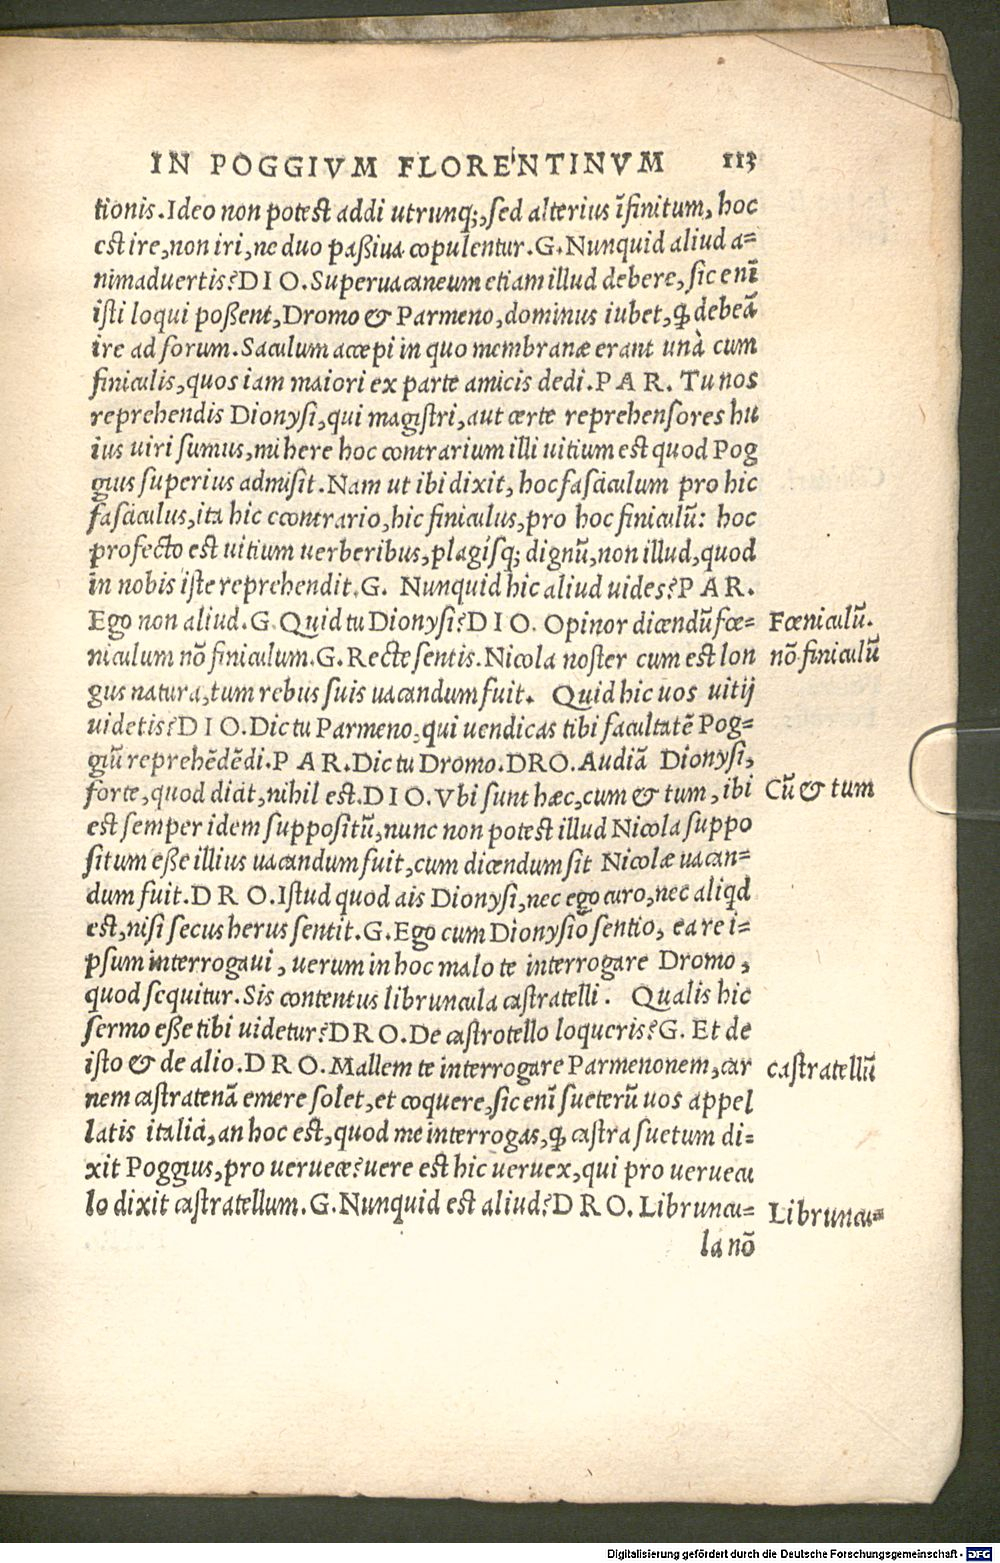 IN POGGIVM FLORENTINVM 113
tionis. Ideo non potest addi utrunq;, sed alterius ĩfinitum, hoc
est ire, non iri, ne duo paßiua copulentur. G. Nunquid aliud a=
nimaduertis? DIO. Superuacaneum etiam illud debere, sic enĩ
isti loqui poßent, Dromo & Parmeno, dominus iubet, ꝙ debeã
ire ad forum. Saculum accepi in quo membranæ erant unà cum
finiculis, quos iam maiori ex parte amicis dedi. PAR. Tu nos
reprehendis Dionysi, qui magistri, aut certe reprehensores hu
ius uiri sumus, mi here hoc contrarium illi uitium est quod Pog
gius superius admisit. Nam ut ibi dixit, hoc fasciculum pro hic
fasciculus, ita hic econtrario, hic finiculus, pro hoc finiculũ: hoc
profecto est uitium uerberibus, plagisq; dignũ, non illud, quod
in nobis iste reprehendit. G. Nunquid hic aliud uides? PAR.
Ego non aliud. G. Quid tu Dionysi? DIO. Opinor dicendũ fœ=
Fœniculũ.
niculum nõ finiculum. G. Recte sentis. Nicola noster cum est lon
nõ finiculũ
gus natura, tum rebus suis uacandum fuit. Quid hic uos uitij
uidetis? DIO. Dic tu Parmeno, qui uendicas tibi facultatẽ Pog=
giũ reprehẽdẽdi. PAR. Dic tu Dromo. DRO. Audiã Dionysi,
forte, quod dicit, nihil est. DIO. Vbi sunt hæc, cum & tum, ibi
Cũ & tum
est semper idem suppositũ, nunc non potest illud Nicola suppo
situm eße illius uacandum fuit, cum dicendum sit Nicolæ uacan=
dum fuit. DRO. Istud quod ais Dionysi, nec ego curo, nec aliqd
est, nisi secus herus sentit. G. Ego cum Dionysio sentio, ea re i=
psum interrogaui, uerum in hoc malo te interrogare Dromo,
quod sequitur. Sis contentus libruncula castratelli. Qualis hic
sermo eße tibi uidetur? DRO. De castrotello loqueris? G. Et de
isto & de alio. DRO. Mallem te interrogare Parmenonem, car
castratellũ
nem castratenã emere solet, et coquere, sic enĩ sueterũ uos appel
latis italici, an hoc est, quod me interrogas, ꝙ castra suetum di=
xit Poggius, pro ueruece? uere est hic ueruex, qui pro ueruecu
lo dixit castratellum. G. Nunquid est aliud? DRO. Libruncu=
Libruncu=
la nõ
Digitalisierung gefördert durch die Deutsche Forschungsgemeinschaft - DFG